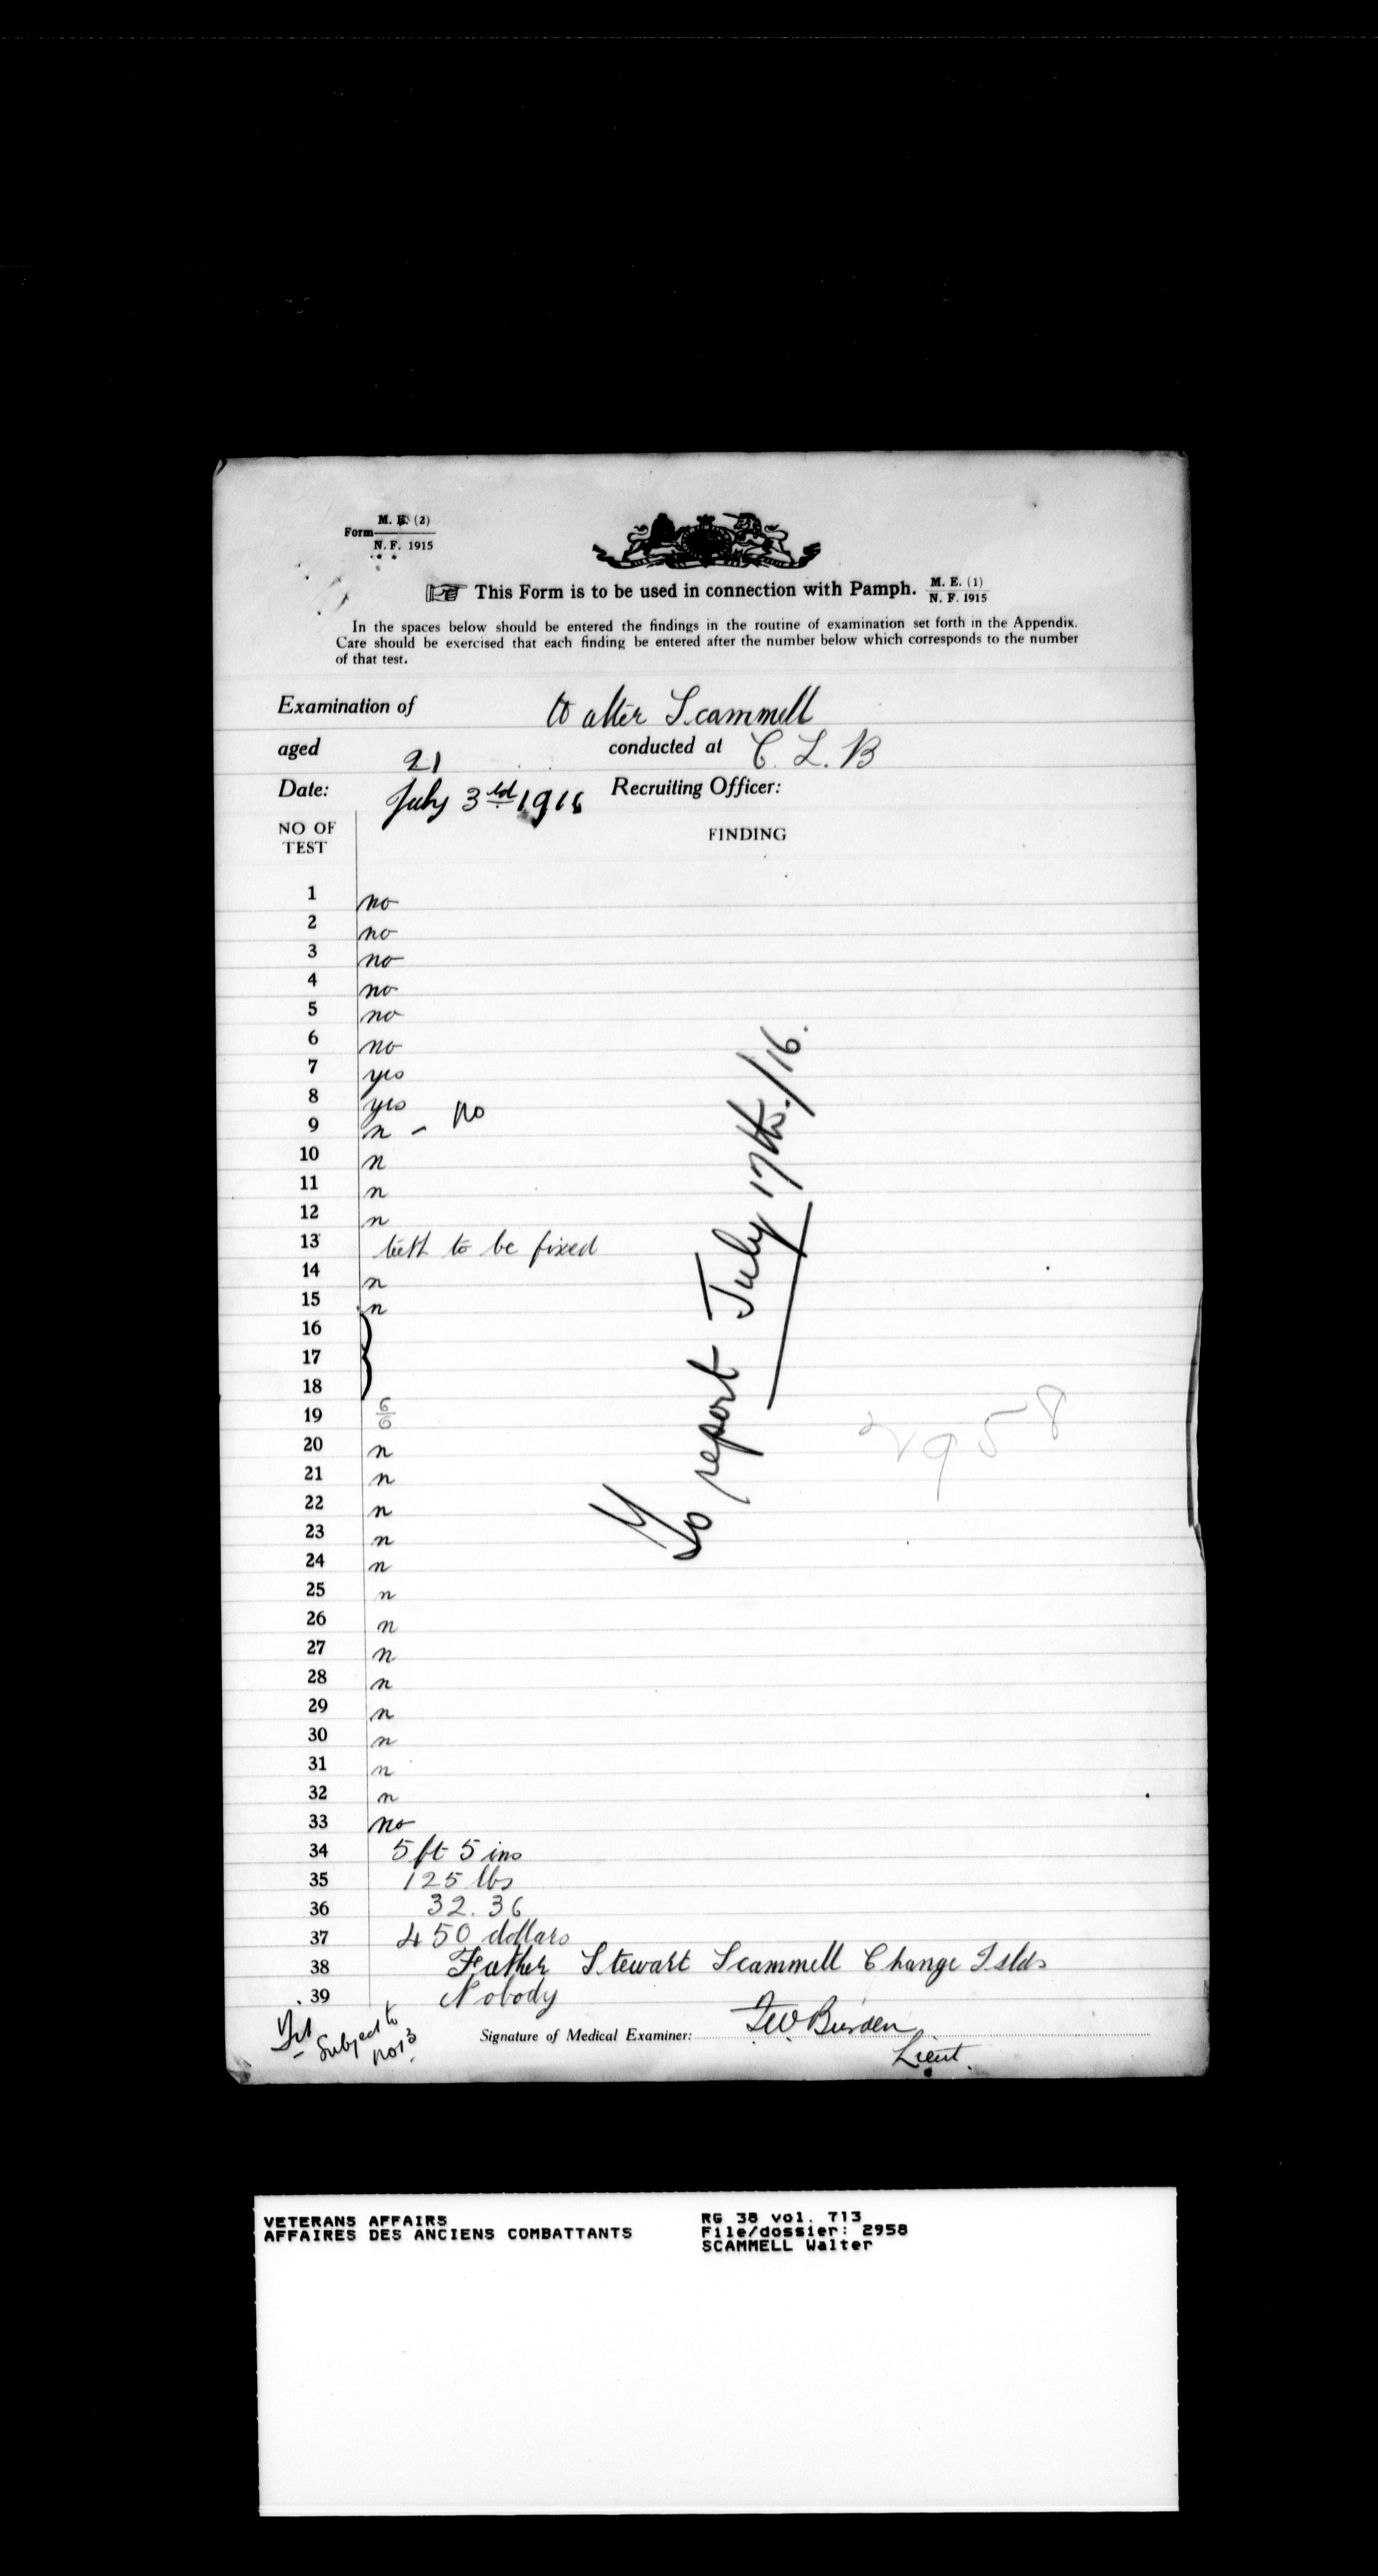 Form M. E. (2)
N. F. 1915
This Form is to be used in connection with Pamph. M. E. (1)
N. F. 1915
In the spaces below should be entered the findings in the routine of examination set forth in the Appendix.
Care should be exercised that each finding be entered after the number below which corresponds to the number
of that test.
Examination of Walter Scammell
aged 21 conducted at C. L. B
Date: July 3rd 1916 Recruiting Officer:
NO OF
TEST
FINDING
1 no
2 no
3 no
4 no
5 no
6 no
7 yes
8 yes
9 n - no
10 n
11 n
12 n
13 teeth to be fixed
14 n
15 n
16
17
18
19 6/6
20 n
21 n
22 n
23 n
24 n
25 n
26 n
27 n
28 n
29 n
30 n
31 n
32 n
33 no
34 5 ft 5 ins
35 125 lbs
36 32. 36
37 450 dollars
38 Father Stewart Scammell Change Islds
39 Nobody
To report July 17th./16.
2958
Subject to
no 13
Signature of Medical Examiner: FW Burden
Lieut.
VETERANS AFFAIRS
AFFAIRES DES ANCIENS COMBATTANTS
RG 38 vol. 713
File/dossier: 2958
SCAMMELL Walter